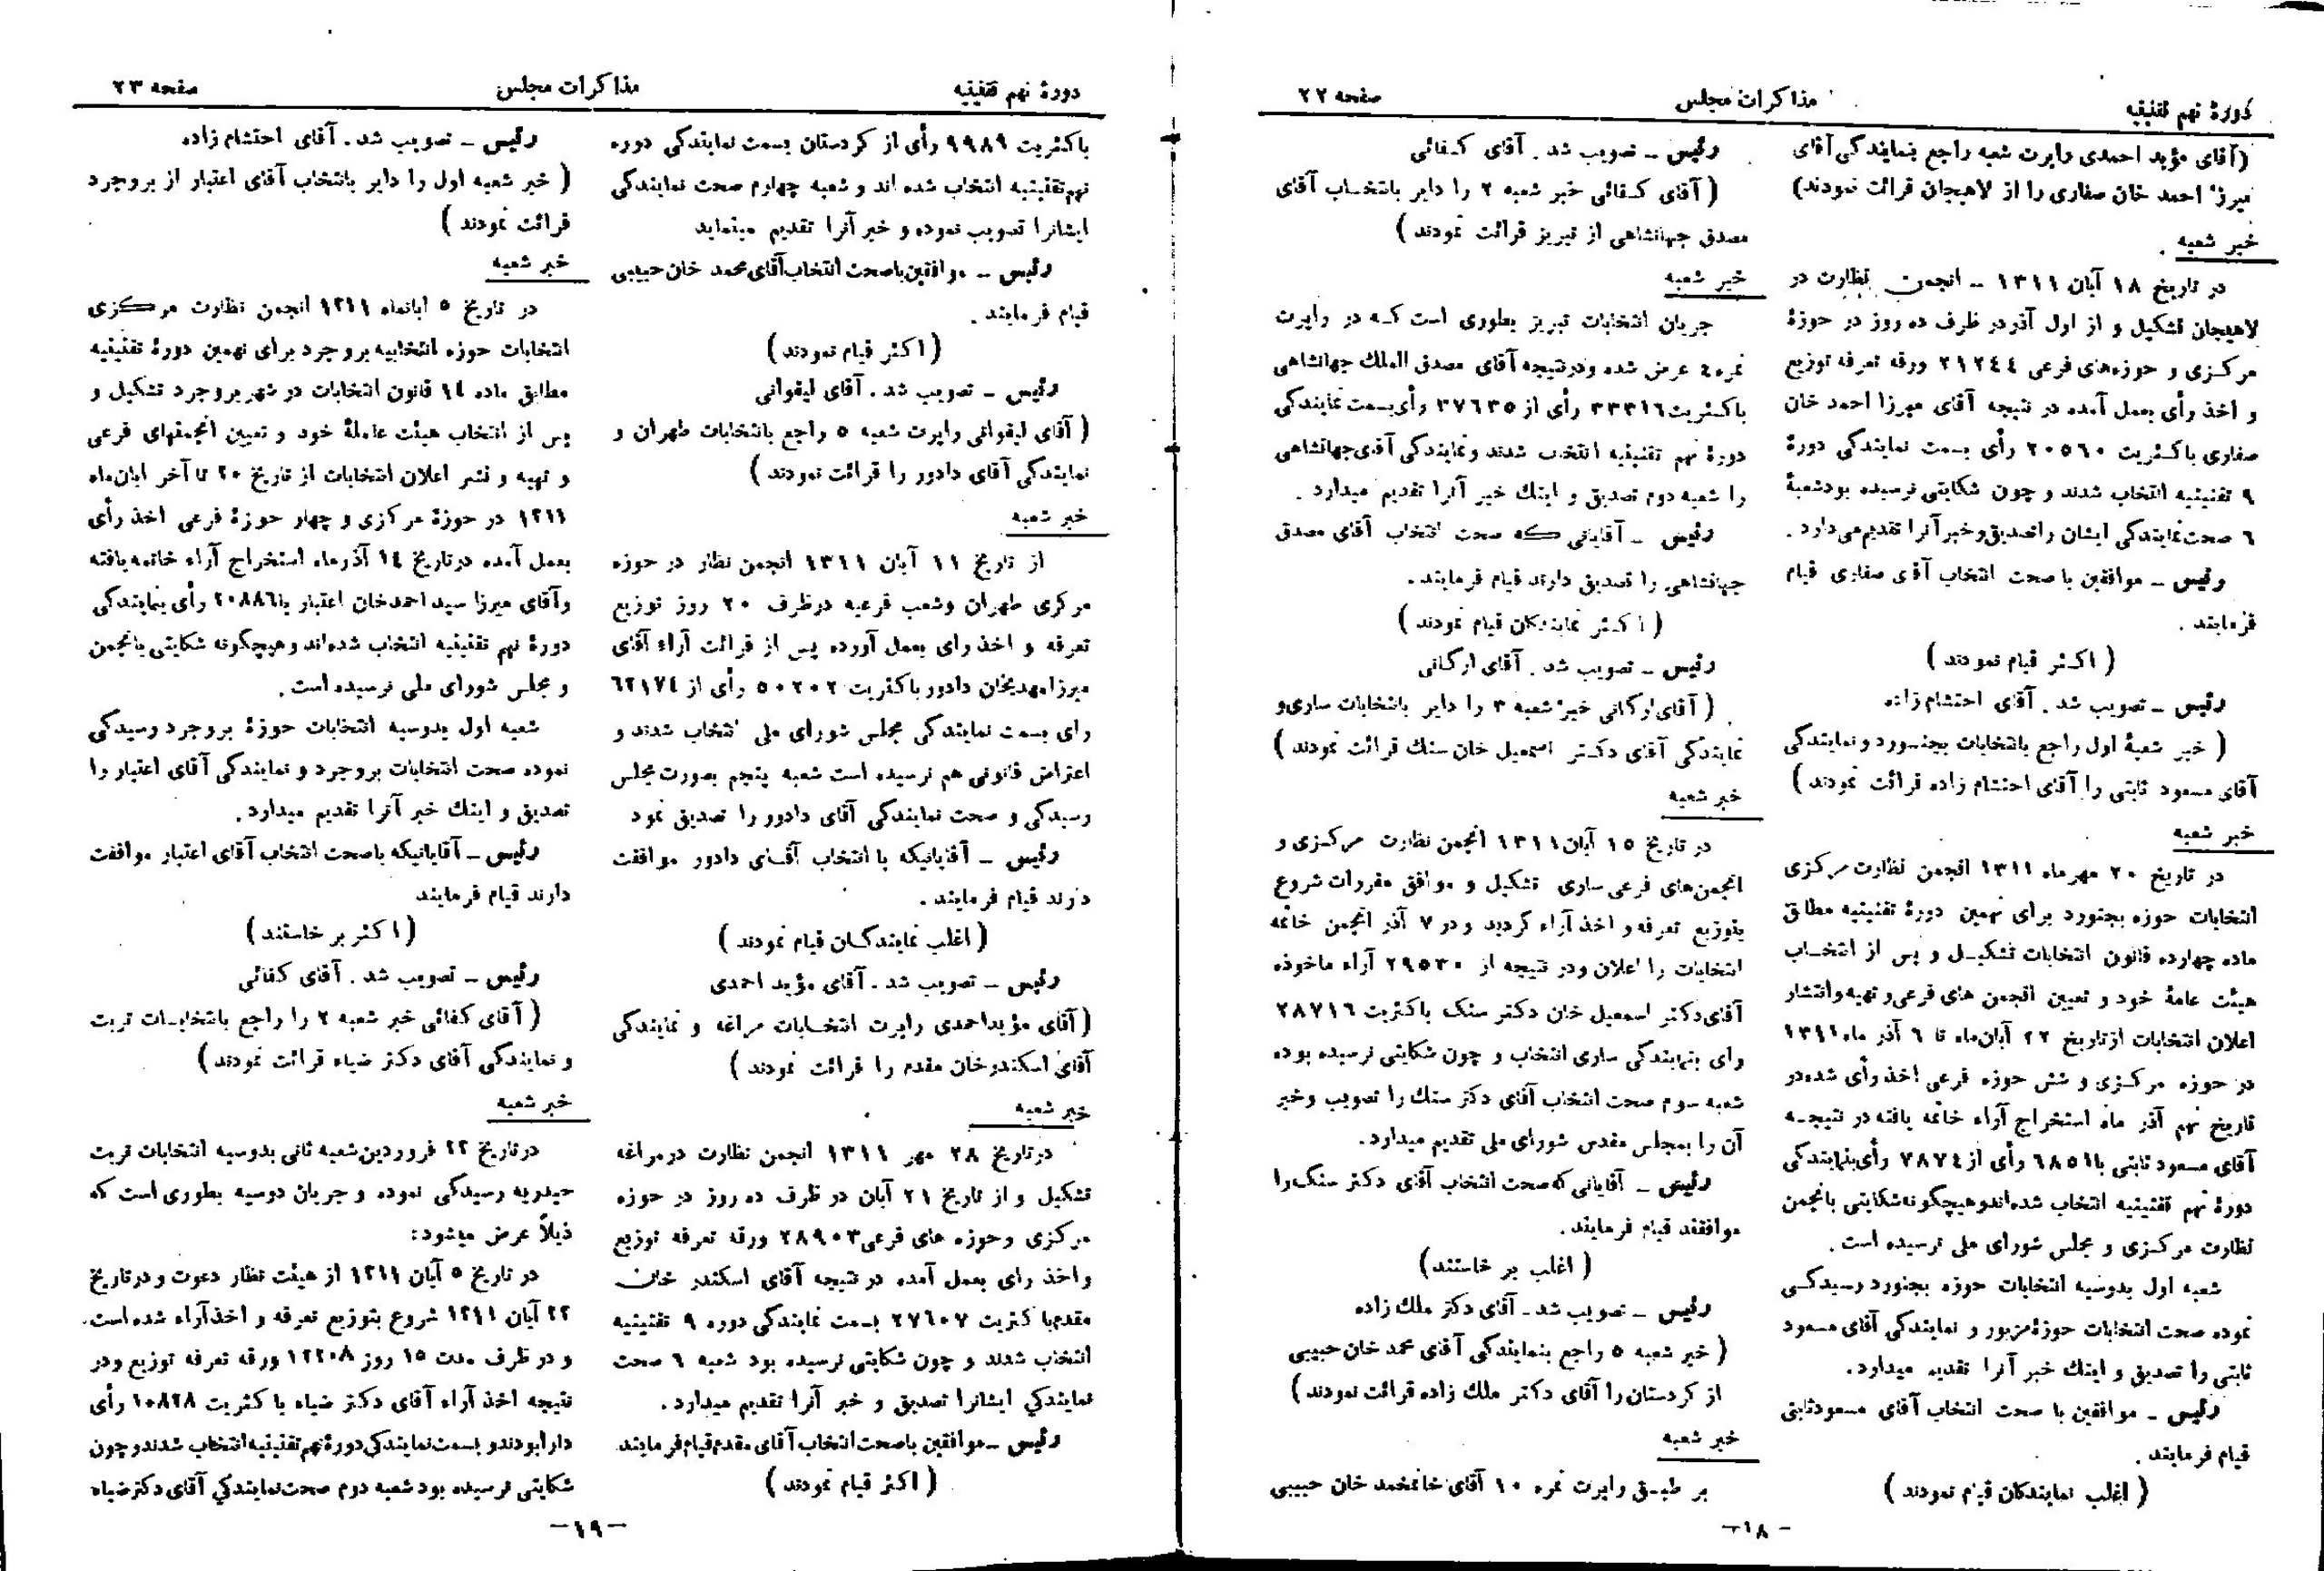 دورهٔ نهم تقنینیه
مذاکرات مجلس
صفحه ۲۲
(آقای مؤید احمدی راپرت شعبه راجع بنمایندگی آقای
میرزا احمد خان صفاری را از لاهیجان قرائت نمودند)
خبر شعبه
در تاریخ ۱۸ آبان ۱۳۱۱ ــ انجمن نظارت در
لاهیجان تشکیل و از اول آذر در ظرف ده روز در حوزهٔ
مرکزی و حوزه‌های فرعی ۲۱۲٤٤ ورقه تعرفه توزیع
و اخذ رأی بعمل آمده در نتیجه آقای میرزا احمد خان
صفاری باکثریت ۲۰۵٦۰ رأی بسمت نمایندگی دورهٔ
۹ تقنینیه انتخاب شدند و چون شکایتی نرسیده بود شعبهٔ
٦ صحت نمایندگی ایشان را تصدیق و خبر آنرا تقدیم می‌دارد .
رئیس ــ موافقین با صحت انتخاب آقای صفاری قیام
فرمایند .
( اکثر قیام نمودند )
رئیس ــ تصویب شد . آقای احتشام زاده
( خبر شعبهٔ اول راجع بانتخابات بجنورد و نمایندگی
آقای مسعود ثابتی را آقای احتشام زاده قرائت نمودند )
خبر شعبه
در تاریخ ۲۰ مهرماه ۱۳۱۱ انجمن نظارت مرکزی
انتخابات حوزه بجنورد برای نهمین دورهٔ تقنینیه مطابق
ماده چهارده قانون انتخابات تشکیل و پس از انتخاب
هیئت عاملهٔ خود و تعیین انجمن های فرعی و تهیه و انتشار
اعلان انتخابات از تاریخ ۲۲ آبان‌ماه تا ٦ آذر ماه ۱۳۱۱
در حوزه مرکزی و شش حوزه فرعی اخذ رأی شده در
تاریخ نهم آذر ماه استخراج آراء خاتمه یافته در نتیجه
آقای مسعود ثابتی با ٦۸۵۱ رأی از ۷۸۷٤ رأی بنمایندگی
دورهٔ نهم تقنینیه انتخاب شده‌اند و هیچگونه شکایتی بانجمن
نظارت مرکزی و مجلس شورای ملی نرسیده است .
شعبه اول بدوسیه انتخابات حوزه بجنورد رسیدگی
نموده صحت انتخابات حوزهٔ مزبور و نمایندگی آقای مسعود
ثابتی را تصدیق و اینك خبر آنرا تقدیم میدارد.
رئیس ــ موافقین با صحت انتخاب آقای مسعود ثابتی
قیام فرمایند .
( اغلب نمایندگان قیام نمودند )
رئیس ــ تصویب شد . آقای کفائی
( آقای کفائی خبر شعبه ۲ را دایر بانتخاب آقای
مصدق جهانشاهی از تبریز قرائت نمودند )
خبر شعبه
جریان انتخابات تبریز بطوری است که در راپرت
نمره ٤ عرض شده و در نتیجه آقای مصدق الملك جهانشاهی
باکثریت ۳۳۳۱٦ رأی از ۳۷٦۳۵ رأی بسمت نمایندگی
دورهٔ نهم تقنینیه انتخاب شدند و نمایندگی آقای جهانشاهی
را شعبه دوم تصدیق و اینك خبر آنرا تقدیم میدارد .
رئیس ــ آقایانی که صحت انتخاب آقای مصدق
جهانشاهی را تصدیق دارند قیام فرمایند.
( اکثر نمایندگان قیام نمودند )
رئیس ــ تصویب شد . آقای ارکانی
( آقای ارکانی خبر شعبه ۳ را دایر بانتخابات ساری و
نمایندگی آقای دکتر اسمعیل خان سنك قرائت نمودند )
خبر شعبه
در تاریخ ۱۵ آبان ۱۳۱۱ انجمن نظارت مرکزی و
انجمن‌های فرعی ساری تشکیل و موافق مقررات شروع
بتوزیع تعرفه و اخذ آراء گردید و در ۷ آذر انجمن خاتمه
انتخابات را اعلان و در نتیجه از ۲۹۵۳۰ آراء ماخوذه
آقای دکتر اسمعیل خان دکتر سنك باکثریت ۲۸۷۱٦
رای بنمایندگی ساری انتخاب و چون شکایتی نرسیده بوده
شعبه سوم صحت انتخاب آقای دکتر سنك را تصویب و خبر
آن را بمجلس مقدس شورای ملی تقدیم میدارد.
رئیس ــ آقایانی که صحت انتخاب آقای دکتر سنك را
موافقند قیام فرمایند.
( اغلب بر خاستند )
رئیس ــ تصویب شد ـ آقای دکتر ملك زاده
( خبر شعبه ۵ راجع بنمایندگی آقای محمد خان حبیبی
از کردستان را آقای دکتر ملك زاده قرائت نمودند )
خبر شعبه
بر طبق راپرت نمره ۱۰ آقای محمد خان حبیبی
ــ ۱۸ ــ
دورهٔ نهم تقنینیه
مذاکرات مجلس
صفحه ۲۳
باکثریت ۹۹۸۹ رأی از کردستان بسمت نمایندگی دوره
نهم تقنینیه انتخاب شده اند و شعبه چهارم صحت نمایندگی
ایشانرا تصویب نموده و خبر آنرا تقدیم مینماید
رئیس ــ موافقین باصحت انتخاب آقای محمد خان حبیبی
قیام فرمایند .
( اکثر قیام نمودند )
رئیس ــ تصویب شد . آقای لیقوانی
( آقای لیقوانی راپرت شعبه ۵ راجع بانتخابات طهران و
نمایندگی آقای دادور را قرائت نمودند )
خبر شعبه
از تاریخ ۱۱ آبان ۱۳۱۱ انجمن نظار در حوزه
مرکزی طهران و شعب فرعیه در ظرف ۲۰ روز توزیع
تعرفه و اخذ رای بعمل آورده پس از قرائت آراء آقای
میرزا مهدیخان دادور باکثریت ۵۰۲۰۲ رأی از ٦۲۱۷٤
رای بسمت نمایندگی مجلس شورای ملی انتخاب شدند و
اعتراض قانونی هم نرسیده است شعبه پنجم بصورت مجلس
رسیدگی و صحت نمایندگی آقای دادور را تصدیق نمود
رئیس ــ آقایانیکه با انتخاب آقای دادور موافقت
دارند قیام فرمایند .
( اغلب نمایندگان قیام نمودند )
رئیس ــ تصویب شد . آقای مؤید احمدی
( آقای مؤید احمدی راپرت انتخابات مراغه و نمایندگی
آقای اسکندر خان مقدم را قرائت نمودند )
خبر شعبه
در تاریخ ۲۸ مهر ۱۳۱۱ انجمن نظارت در مراغه
تشکیل و از تاریخ ۲۱ آبان در ظرف ده روز در حوزه
مرکزی و حوزه های فرعی ۲۸۹۰۳ ورقه تعرفه توزیع
و اخذ رای بعمل آمده در نتیجه آقای اسکندر خان
مقدم باکثریت ۲۷٦۰۷ بسمت نمایندگی دوره ۹ تقنینیه
انتخاب شدند و چون شکایتی نرسیده بود شعبه ٦ صحت
نمایندگی ایشانرا تصدیق و خبر آنرا تقدیم میدارد.
رئیس ــ موافقین باصحت انتخاب آقای مقدم قیام فرمایند
( اکثر قیام نمودند )
رئیس ــ تصویب شد . آقای احتشام زاده
( خبر شعبه اول را دایر بانتخاب آقای اعتبار از بروجرد
قرائت نمودند )
خبر شعبه
در تاریخ ۵ ابانماه ۱۳۱۱ انجمن نظارت مرکزی
انتخابات حوزه انتخابیه بروجرد برای نهمین دورهٔ تقنینیه
مطابق ماده ۱٤ قانون انتخابات در شهر بروجرد تشکیل و
پس از انتخاب هیئت عاملهٔ خود و تعیین انجمنهای فرعی
و تهیه و نشر اعلان انتخابات از تاریخ ۲۰ تا آخر ابان‌ماه
۱۳۱۱ در حوزهٔ مرکزی و چهار حوزهٔ فرعی اخذ رأی
بعمل آمده در تاریخ ۱٤ آذرماه استخراج آراء خاتمه یافته
و آقای میرزا سید احمدخان اعتبار با ۲۰۸۸٦ رأی بنمایندگی
دورهٔ نهم تقنینیه انتخاب شده‌اند و هیچگونه شکایتی بانجمن
و مجلس شورای ملی نرسیده است .
شعبه اول بدوسیه انتخابات حوزهٔ بروجرد رسیدگی
نموده صحت انتخابات بروجرد و نمایندگی آقای اعتبار را
تصدیق و اینك خبر آنرا تقدیم میدارد .
رئیس ــ آقایانیکه باصحت انتخاب آقای اعتبار موافقت
دارند قیام فرمایند
( اکثر بر خاستند )
رئیس ــ تصویب شد . آقای کفائی
( آقای کفائی خبر شعبه ۲ را راجع بانتخابات تربت
و نمایندگی آقای دکتر ضیاء قرائت نمودند )
خبر شعبه
در تاریخ ۲۲ فروردین شعبه ثانی بدوسیه انتخابات تربت
حیدریه رسیدگی نموده و جریان دوسیه بطوری است که
ذیلاً عرض میشود:
در تاریخ ۵ آبان ۱۳۱۱ از هیئت نظار دعوت و در تاریخ
۲۲ آبان ۱۳۱۱ شروع بتوزیع تعرفه و اخذ آراء شده است.
و در ظرف مدت ۱۵ روز ۱۲۲۰۸ ورقه تعرفه توزیع و در
نتیجه اخذ آراء آقای دکتر ضیاء با کثریت ۱۰۸۲۸ رأی
دارا بودند و بسمت نمایندگی دورهٔ نهم تقنینیه انتخاب شدند و چون
شکایتی نرسیده بود شعبه دوم صحت نمایندگی آقای دکتر ضیاء
ــ ۱۹ ــ